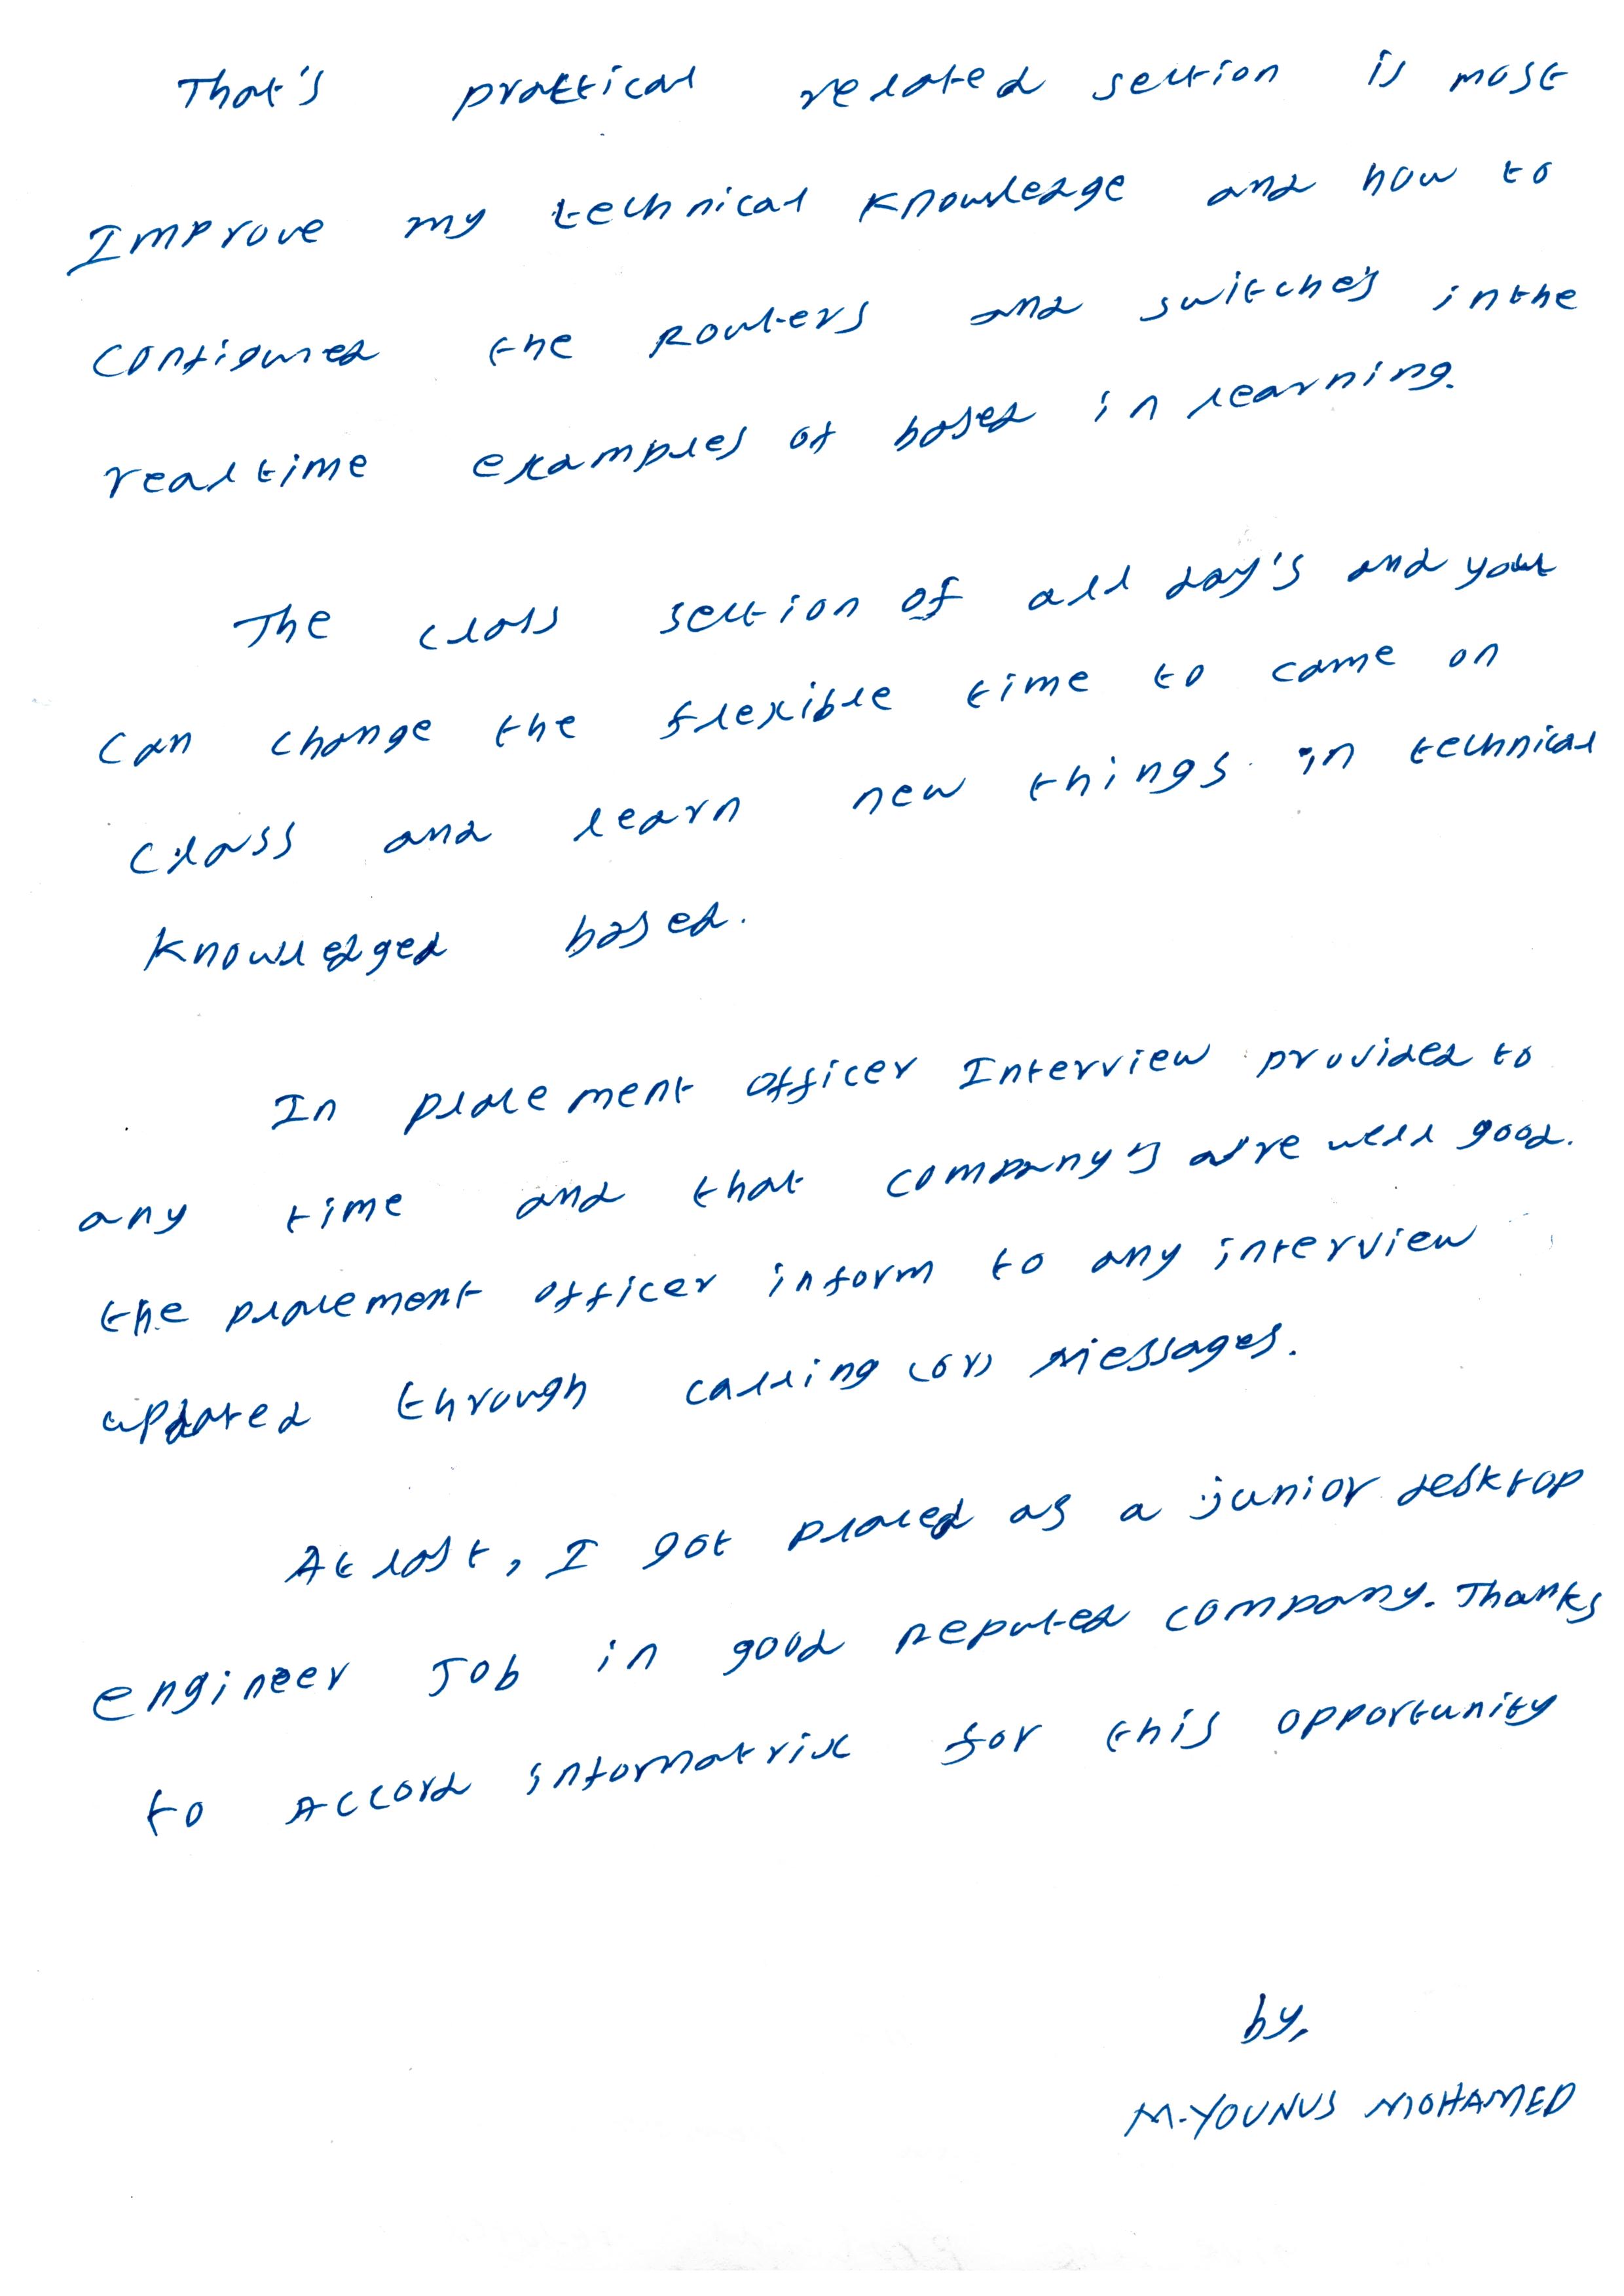 That's practical related section is most
Improve my technical knowledge and how to
configured the Routers and switches in the
real time examples of based in learning.
The class section of all day's and your
can change the flexible time to came on
class and learn new things in technical
knowledged based.
In placement officer Interview provided to
any time and that company's are well good.
the placement officer inform to any interview
updated through calling (or) Messages.
At last, I got placed as a junior desktop
engineer Job in good reputed company. Thanks
to Accord informatrix for this opportunity
by,
M.YOUNUS MOHAMED